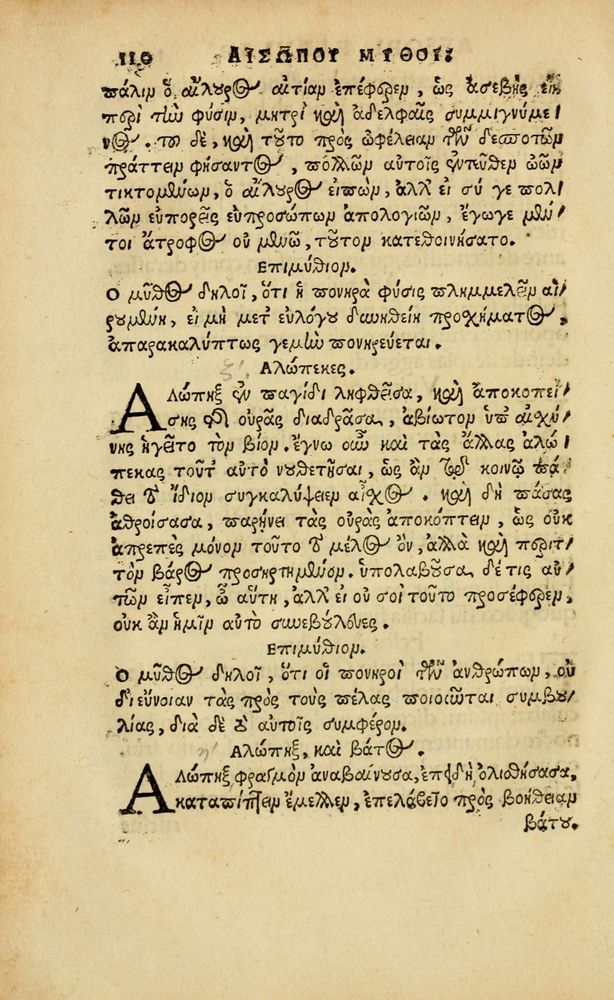 110 ΑΙΣΩΠΟΥ ΜΥΘΟΙ.
πάλιν ὁ αἴλουρος αἰτίαν ἐπέφερεν, ὡς ἀσεβὴς εἴη
περὶ τὴν φύσιν, μητρὶ καὶ ἀδελφαῖς συμμιγνύμε-
νος. τοῦ δὲ, καὶ τοῦτο πρὸς ὠφέλειαν τῶν δεσποτῶν
πράττειν φήσαντος, πολλῶν αὐτοῖς ἐντεῦθεν ὠῶν
τικτομένων, ὁ αἴλουρος εἰπὼν, ἀλλ' εἰ σύ γε πολ-
λῶν εὐπορεῖς εὐπροσώπων ἀπολογιῶν, ἔγωγε μέν-
τοι ἄτροφος οὐ μενῶ, τοῦτον κατεθοινήσατο.
Επιμύθιον.
Ο μῦθος δηλοῖ, ὅτι ἡ πονηρὰ φύσις πλημμελεῖν αἱ-
ρουμένη, εἰ μὴ μετ' εὐλόγου δυνηθείη προσχήματος,
ἀπαρακαλύπτως γε μὴν πονηρεύεται.
Αλώπεκες.
Αλώπηξ ἐν παγίδι ληφθεῖσα, καὶ ἀποκοπεί-
σης τῆς οὐρᾶς διαδρᾶσα, ἀβίωτον ὑπ' αἰσχύ-
νης ἡγεῖτο τὸν βίον. ἔγνω οὖν καὶ τὰς ἄλλας ἀλώ-
πεκας τοῦτ' αὐτὸ νουθετῆσαι, ὡς ἂν τῷ κοινῷ πά-
θει τὸ ἴδιον συγκαλύψειεν αἶσχος. καὶ δὴ πάσας
ἀθροίσασα, παρῄνει τὰς οὐρὰς ἀποκόπτειν, ὡς οὐκ
ἀπρεπὲς μόνον τοῦτο τὸ μέλος ὂν, ἀλλὰ καὶ περιτ-
τὸν βάρος προσηρτημένον. ὑπολαβοῦσα δέ τις αὐ-
τῶν εἶπεν, ὦ αὕτη, ἀλλ' εἰ οὐ σοὶ τοῦτο προσέφερεν,
οὐκ ἂν ἡμῖν αὐτὸ συνεβούλευες.
Επιμύθιον.
Ο μῦθος δηλοῖ, ὅτι οἱ πονηροὶ τῶν ἀνθρώπων, οὐ
δι' εὔνοιαν τὰς πρὸς τοὺς πέλας ποιοῦνται συμβου-
λίας, διὰ δὲ τὸ αὐτοῖς συμφέρον.
Αλώπηξ, καὶ βάτος.
Αλώπηξ φραγμὸν ἀναβαίνουσα, ἐπειδὴ ὀλισθήσασα,
καταπίπτειν ἔμελλεν, ἐπελάβετο πρὸς βοήθειαν
βάτου.